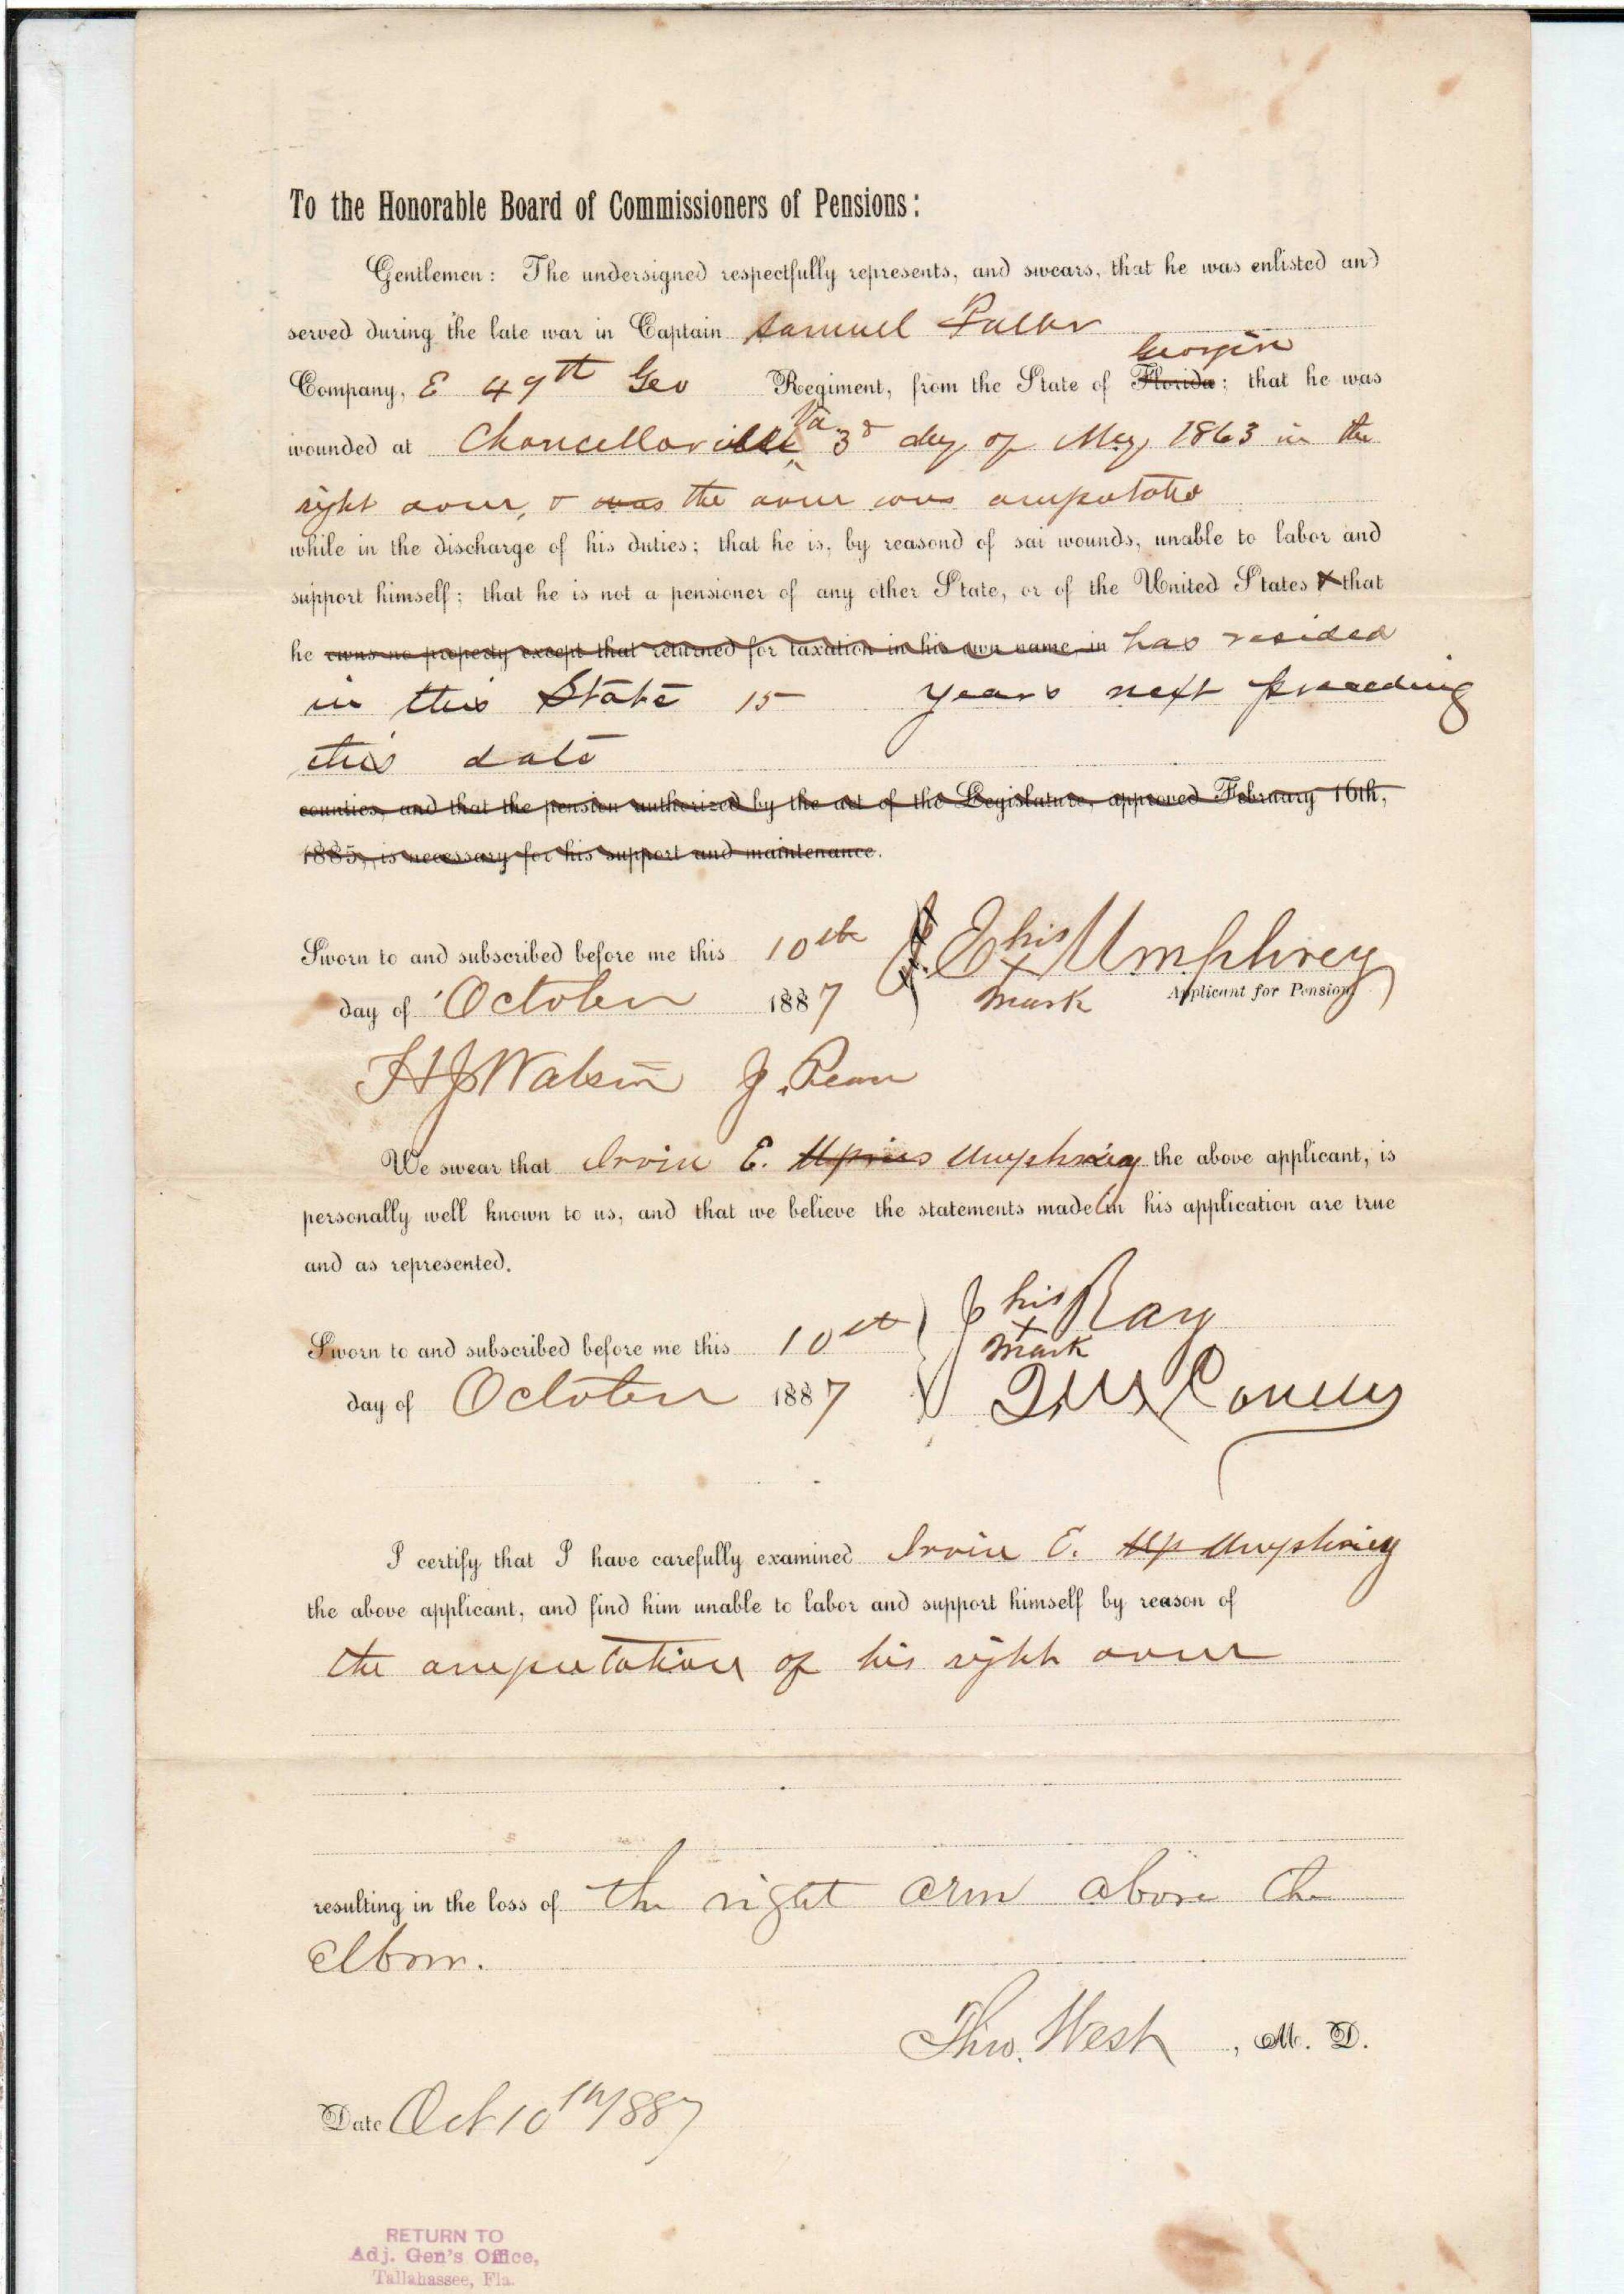 To the Honorable Board of Commissioners of Pensions:
Gentlemen: The undersigned respectfully represents, and swears, that he was enlisted and
served during the late war in Captain Samuel
Georgia
Company, E 49th Geo Regiment, from the State of Florida; that he was
Va
wounded at Chancellorville 3d day of May 1863 in the
right arm, & was the arm was amputated
while in the discharge of his duties; that he is, by reasond of sai wounds, unable to labor and
support himself; that he is not a pensioner of any other State, or of the United States & that
he owns no property except that returned for taxation in his own name in has resided
in this State 15 years next preceeding
this date
counties, and that the pension authorized by the act of the Legislature, approved February 16th,
1885, is necessary for his support and maintenance.
Sworn to and subscribed before me this 10th J. E his x mark Umphrey
day of October 1887 Applicant for Pension
Watson
We swear that Irvin E. Umphrey the above applicant, is
personally well known to us, and that we believe the statements made in his application are true
and as represented.
Sworn to and subscribed before me this 10th J his x mark Ray
day of October 1887
I certify that I have carefully examined Irvin E. Up Umphrey
the above applicant, and find him unable to labor and support himself by reason of
the amputation of his right arm
resulting in the loss of the right arm above the
elbow.
Theo. West, M. D.
Date Oct 10th/887
RETURN TO
Adj. Gen's Office,
Tallahassee, Fla.